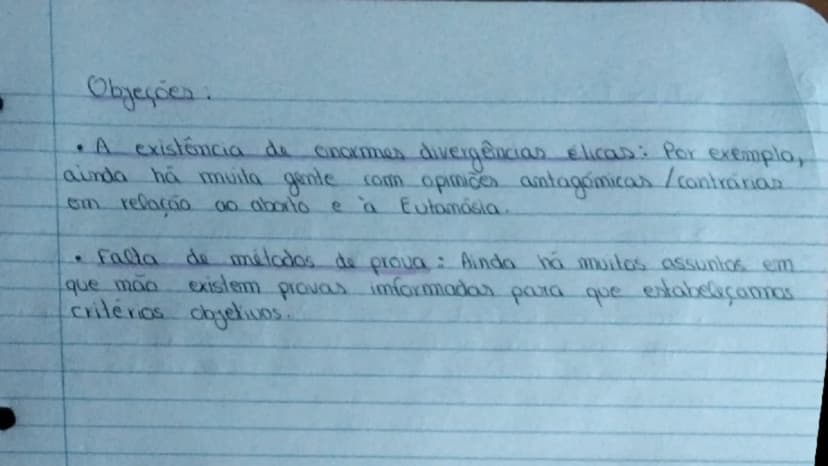 Objeções:
• A existência de enormes divergências éticas: Por exemplo,
ainda há muita gente com opiniões antagónicas /contrárias
em relação ao aborto e à Eutanásia.
• Falta de métodos de prova: Ainda há muitos assuntos em
que não existem provas informadas para que estabeleçamos
critérios objetivos.